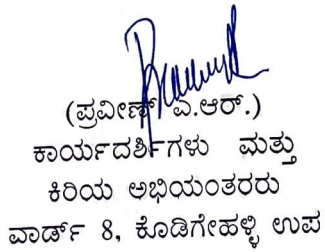 (ಪ್ರವೀಣ್ ಎ.ಆರ್.)
ಕಾರ್ಯದರ್ಶಿಗಳು ಮತ್ತು
ಕಿರಿಯ ಅಭಿಯಂತರರು
ವಾರ್ಡ್ 8, ಕೊಡಿಗೇಹಳ್ಳಿ ಉಪ